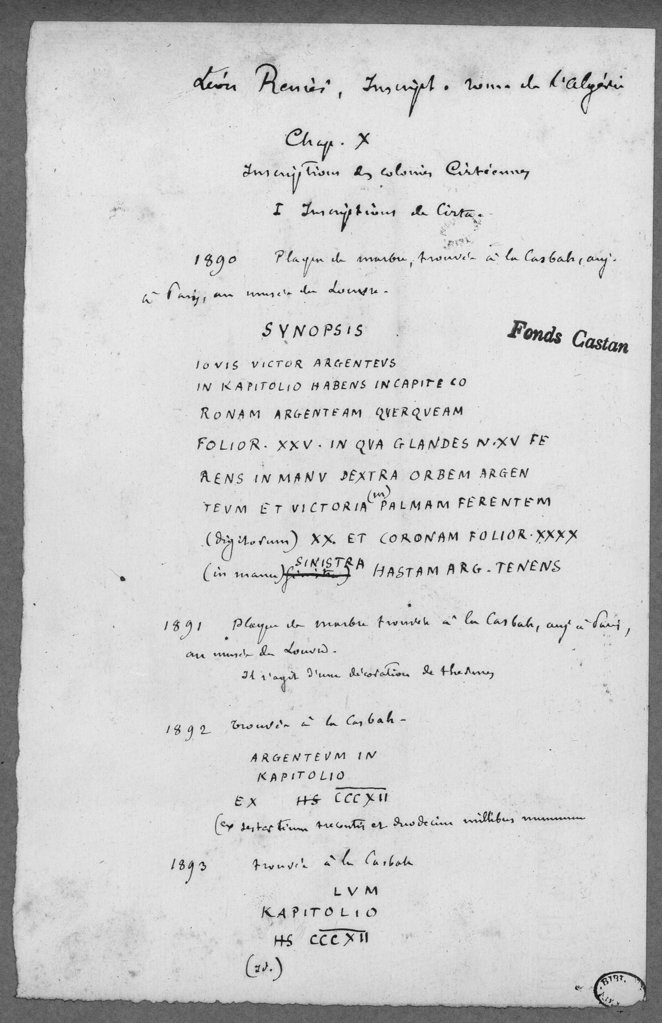 Léon Renier, Inscript. rom. de l'Algérie
Chap. X
Inscriptions des colonies Cirtéennes
I Inscriptions de Cirta.
1890 Plaque de marbre, trouvée à la Casbah, auj.
à Paris, au musée du Louvre.
SYNOPSIS
Fonds Castan
IOVIS VICTOR ARGENTEVS
IN KAPITOLIO HABENS IN CAPITE CO
RONAM ARGENTEAM QVERQVEAM
FOLIOR. XXV. IN QVA GLANDES N. XV FE
RENS IN MANV DEXTRA ORBEM ARGEN
TEVM ET VICTORIA (m) PALMAM FERENTEM
(digitorum) XX. ET CORONAM FOLIOR. XXXX
(in manu) SINISTRA HASTAM ARG. TENENS
1891 Plaque de marbre trouvée à la Casbah, auj. à Paris,
au musée du Louvre.
Il s'agit d'une décoration de thermes
1892 trouvée à la Casbah.
ARGENTEVM IN
KAPITOLIO
EX HS CCCXII
(ex sestertium trecentis et duodecim millibus nummum
1893 trouvée à la Casbah
LVM
KAPITOLIO
HS CCCXII
(Id.)
BIBL.